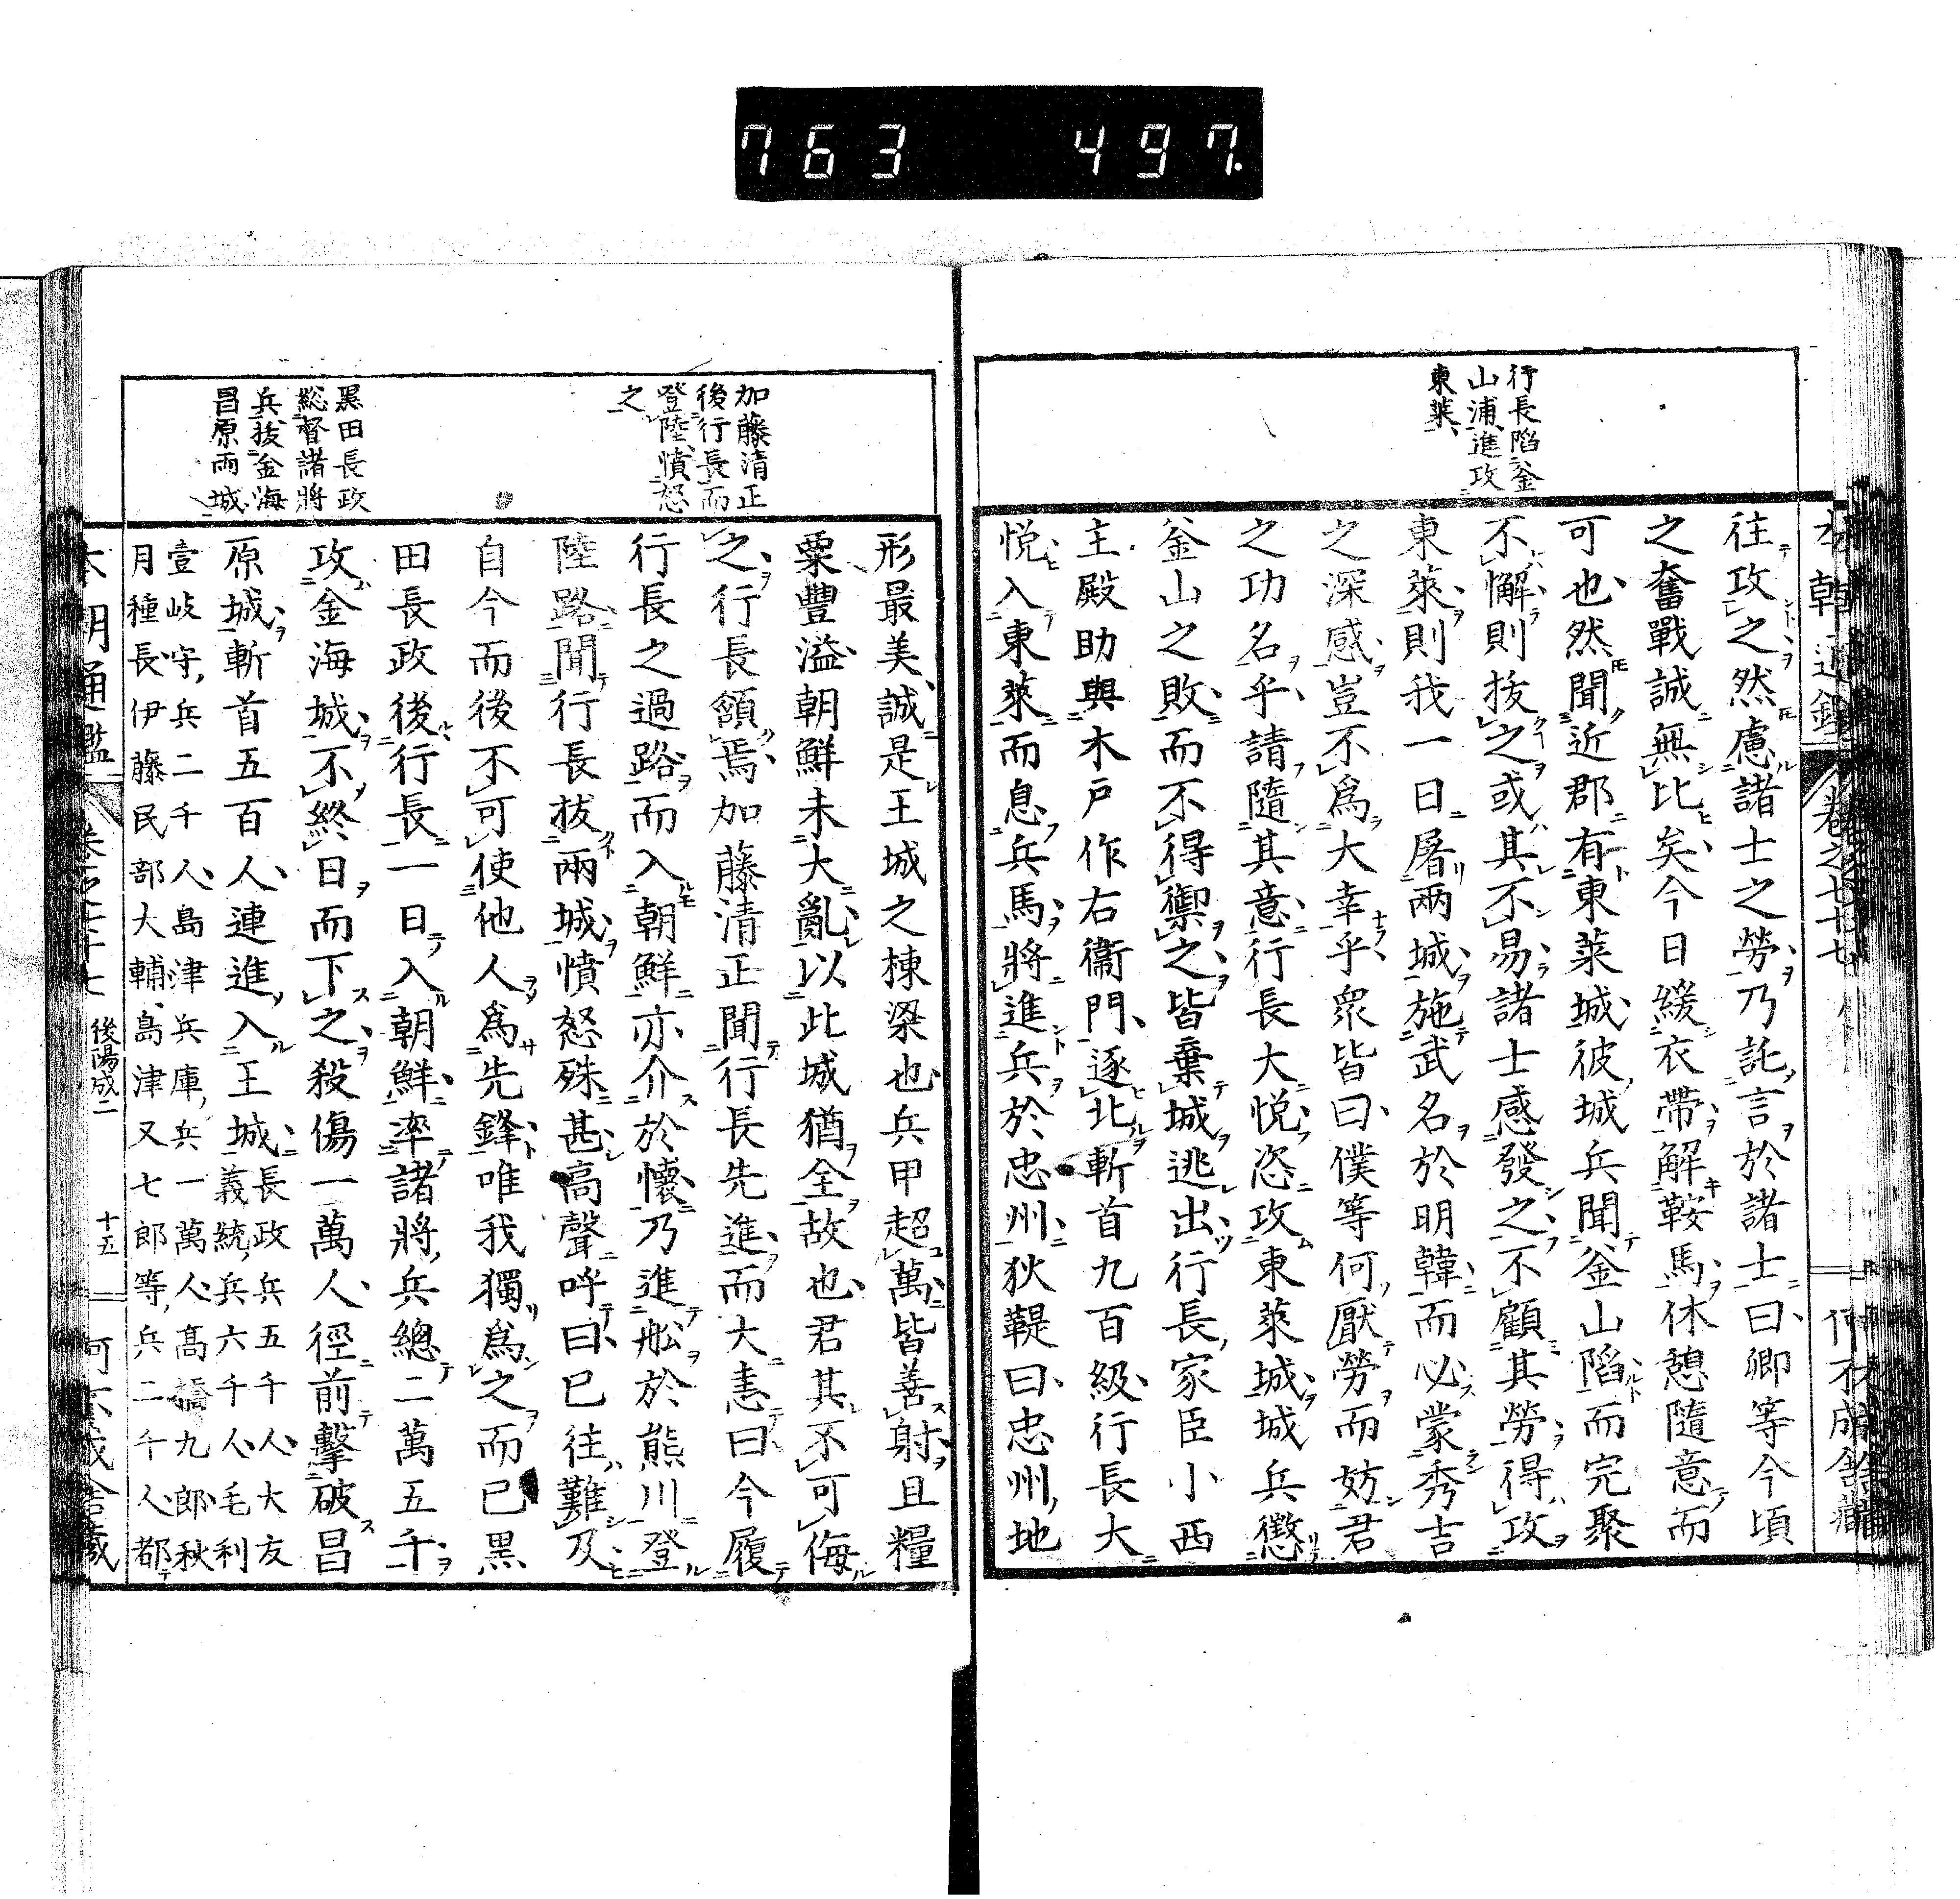 763 497.
行長陷釜
山浦進攻
東萊
往攻之然慮諸士之勞乃託言於諸士曰卿等今頃
之奮戰誠無比矣今日緩衣帶解鞍馬休憩隨意而
可也然聞近郡有東萊城彼城兵聞釜山陷而完聚
不懈則拔之或其不易諸士感發之不顧其勞得攻
東萊則我一日屠兩城施武名於明韓而必蒙秀吉
之深感豈不爲大幸乎眾皆曰僕等何厭勞而妨君
之功名乎請隨其意行長大悦恣攻東萊城城兵懲
釜山之敗而不得禦之皆棄城逃出行長家臣小西
主殿助與木戸作右衞門逐北斬首九百級行長大
悦入東萊而息兵馬將進兵於忠州狄鞮曰忠州地
加藤清正
後行長而
登陸憤怒
之
黒田長政
総督諸將
兵拔金海
昌原兩城
形最美誠是王城之棟梁也兵甲超萬皆善射且糧
粟豐溢朝鮮未大亂以此城猶全故也君其不可侮
之行長頷焉加藤清正聞行長先進而大恚曰今履
行長之過路而入朝鮮亦介於懷乃進舩於熊川登
陸路聞行長拔兩城憤怒殊甚高聲呼曰已往難及
自今而後不可使他人爲先鋒唯我獨爲之而已黒
田長政後行長一日入朝鮮率諸將兵總二萬五千
攻金海城不終日而下之殺傷一萬人徑前擊破昌
原城斬首五百人連進入王城長政兵五千人大友
義統兵六千人毛利
壹岐守兵二千人島津兵庫兵一萬人高橋九郎秋
月種長伊藤民部大輔島津又七郎等兵二千人都
本朝通鑑 卷之七十七 後陽成二 十五